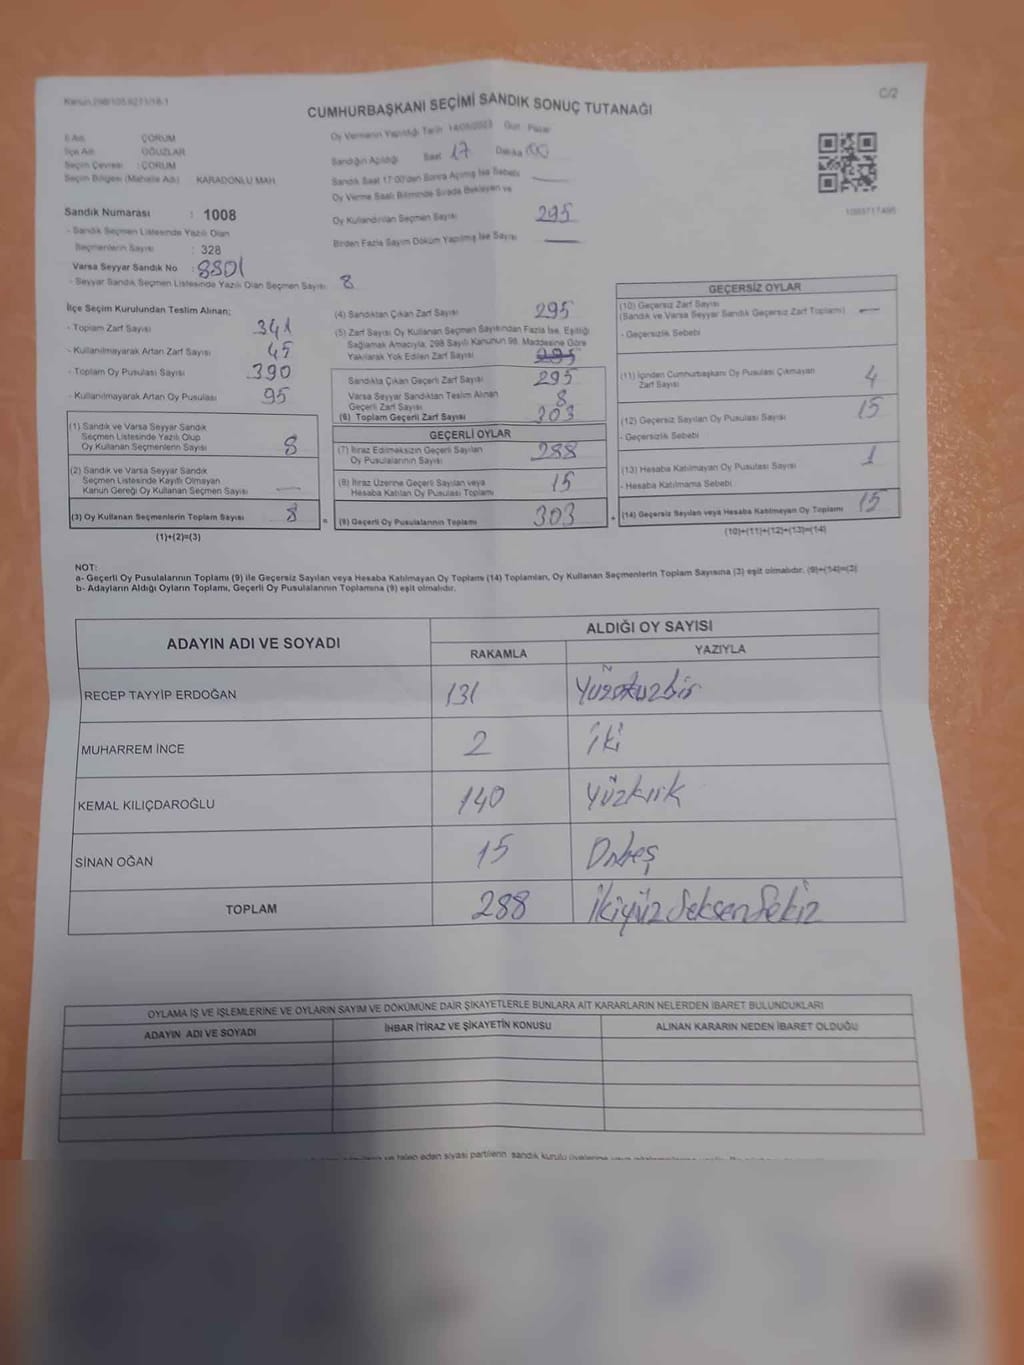 Kanun 298/105,6271/18-1
C/2
CUMHURBAŞKANI SEÇİMİ SANDIK SONUÇ TUTANAĞI
İl Adı : ÇORUM
İlçe Adı : OĞUZLAR
Seçim Çevresi : ÇORUM
Seçim Bölgesi (Mahalle Adı) KARADONLU MAH.
Sandık Numarası : 1008
- Sandık Seçmen Listesinde Yazılı Olan
Seçmenlerin Sayısı : 328
Varsa Seyyar Sandık No : 8801
- Seyyar Sandık Seçmen Listesinde Yazılı Olan Seçmen Sayısı 8
Oy Vermenin Yapıldığı Tarih 14/05/2023 Gün Pazar
Sandığın Açıldığı Saat 17 Dakika 00
Sandık Saat 17:00'den Sonra Açılmış İse Sebebi —
Oy Verme Saati Bitiminde Sırada Bekleyen ve
Oy Kullandırılan Seçmen Sayısı 295
Birden Fazla Sayım Döküm Yapılmış İse Sayısı —
İlçe Seçim Kurulundan Teslim Alınan;
- Toplam Zarf Sayısı 341
- Kullanılmayarak Artan Zarf Sayısı 45
- Toplam Oy Pusulası Sayısı 390
- Kullanılmayarak Artan Oy Pusulası 95
(1) Sandık ve Varsa Seyyar Sandık
Seçmen Listesinde Yazılı Olup
Oy Kullanan Seçmenlerin Sayısı 8
(2) Sandık ve Varsa Seyyar Sandık
Seçmen Listesinde Kayıtlı Olmayan
Kanun Gereği Oy Kullanan Seçmen Sayısı —
(3) Oy Kullanan Seçmenlerin Toplam Sayısı 8
(1)+(2)=(3)
(4) Sandıktan Çıkan Zarf Sayısı 295
(5) Zarf Sayısı Oy Kullanan Seçmen Sayısından Fazla İse, Eşitliği
Sağlamak Amacıyla, 298 Sayılı Kanunun 98. Maddesine Göre
Yakılarak Yok Edilen Zarf Sayısı 295
Sandıkta Çıkan Geçerli Zarf Sayısı 295
Varsa Seyyar Sandıktan Teslim Alınan
Geçerli Zarf Sayısı 8
(6) Toplam Geçerli Zarf Sayısı 303
GEÇERLİ OYLAR
(7) İtiraz Edilmeksizin Geçerli Sayılan
Oy Pusulalarının Sayısı 288
(8) İtiraz Üzerine Geçerli Sayılan veya
Hesaba Katılan Oy Pusulası Toplamı 15
= (9) Geçerli Oy Pusulalarının Toplamı 303 +
GEÇERSİZ OYLAR
(10) Geçersiz Zarf Sayısı
(Sandık ve Varsa Seyyar Sandık Geçersiz Zarf Toplamı) —
- Geçersizlik Sebebi
(11) İçinden Cumhurbaşkanı Oy Pusulası Çıkmayan
Zarf Sayısı 4
(12) Geçersiz Sayılan Oy Pusulası Sayısı 15
- Geçersizlik Sebebi
(13) Hesaba Katılmayan Oy Pusulası Sayısı 1
- Hesaba Katılmama Sebebi
(14) Geçersiz Sayılan veya Hesaba Katılmayan Oy Toplamı 15
(10)+(11)+(12)+(13)=(14)
NOT:
a- Geçerli Oy Pusulalarının Toplamı (9) ile Geçersiz Sayılan veya Hesaba Katılmayan Oy Toplamı (14) Toplamları, Oy Kullanan Seçmenlerin Toplam Sayısına (3) eşit olmalıdır. (9)+(14)=(3)
b- Adayların Aldığı Oyların Toplamı, Geçerli Oy Pusulalarının Toplamına (9) eşit olmalıdır.
ADAYIN ADI VE SOYADI ALDIĞI OY SAYISI
RAKAMLA YAZIYLA
RECEP TAYYİP ERDOĞAN 131 Yüzotuzbir
MUHARREM İNCE 2 İki
KEMAL KILIÇDAROĞLU 140 Yüzkırk
SİNAN OĞAN 15 Onbeş
TOPLAM 288 İkiyüz Seksen Sekiz
OYLAMA İŞ VE İŞLEMLERİNE VE OYLARIN SAYIM VE DÖKÜMÜNE DAİR ŞİKAYETLERLE BUNLARA AİT KARARLARIN NELERDEN İBARET BULUNDUKLARI
ADAYIN ADI VE SOYADI İHBAR İTİRAZ VE ŞİKAYETİN KONUSU ALINAN KARARIN NEDEN İBARET OLDUĞU
talep eden siyasi partilerin sandık kurulu üyelerine